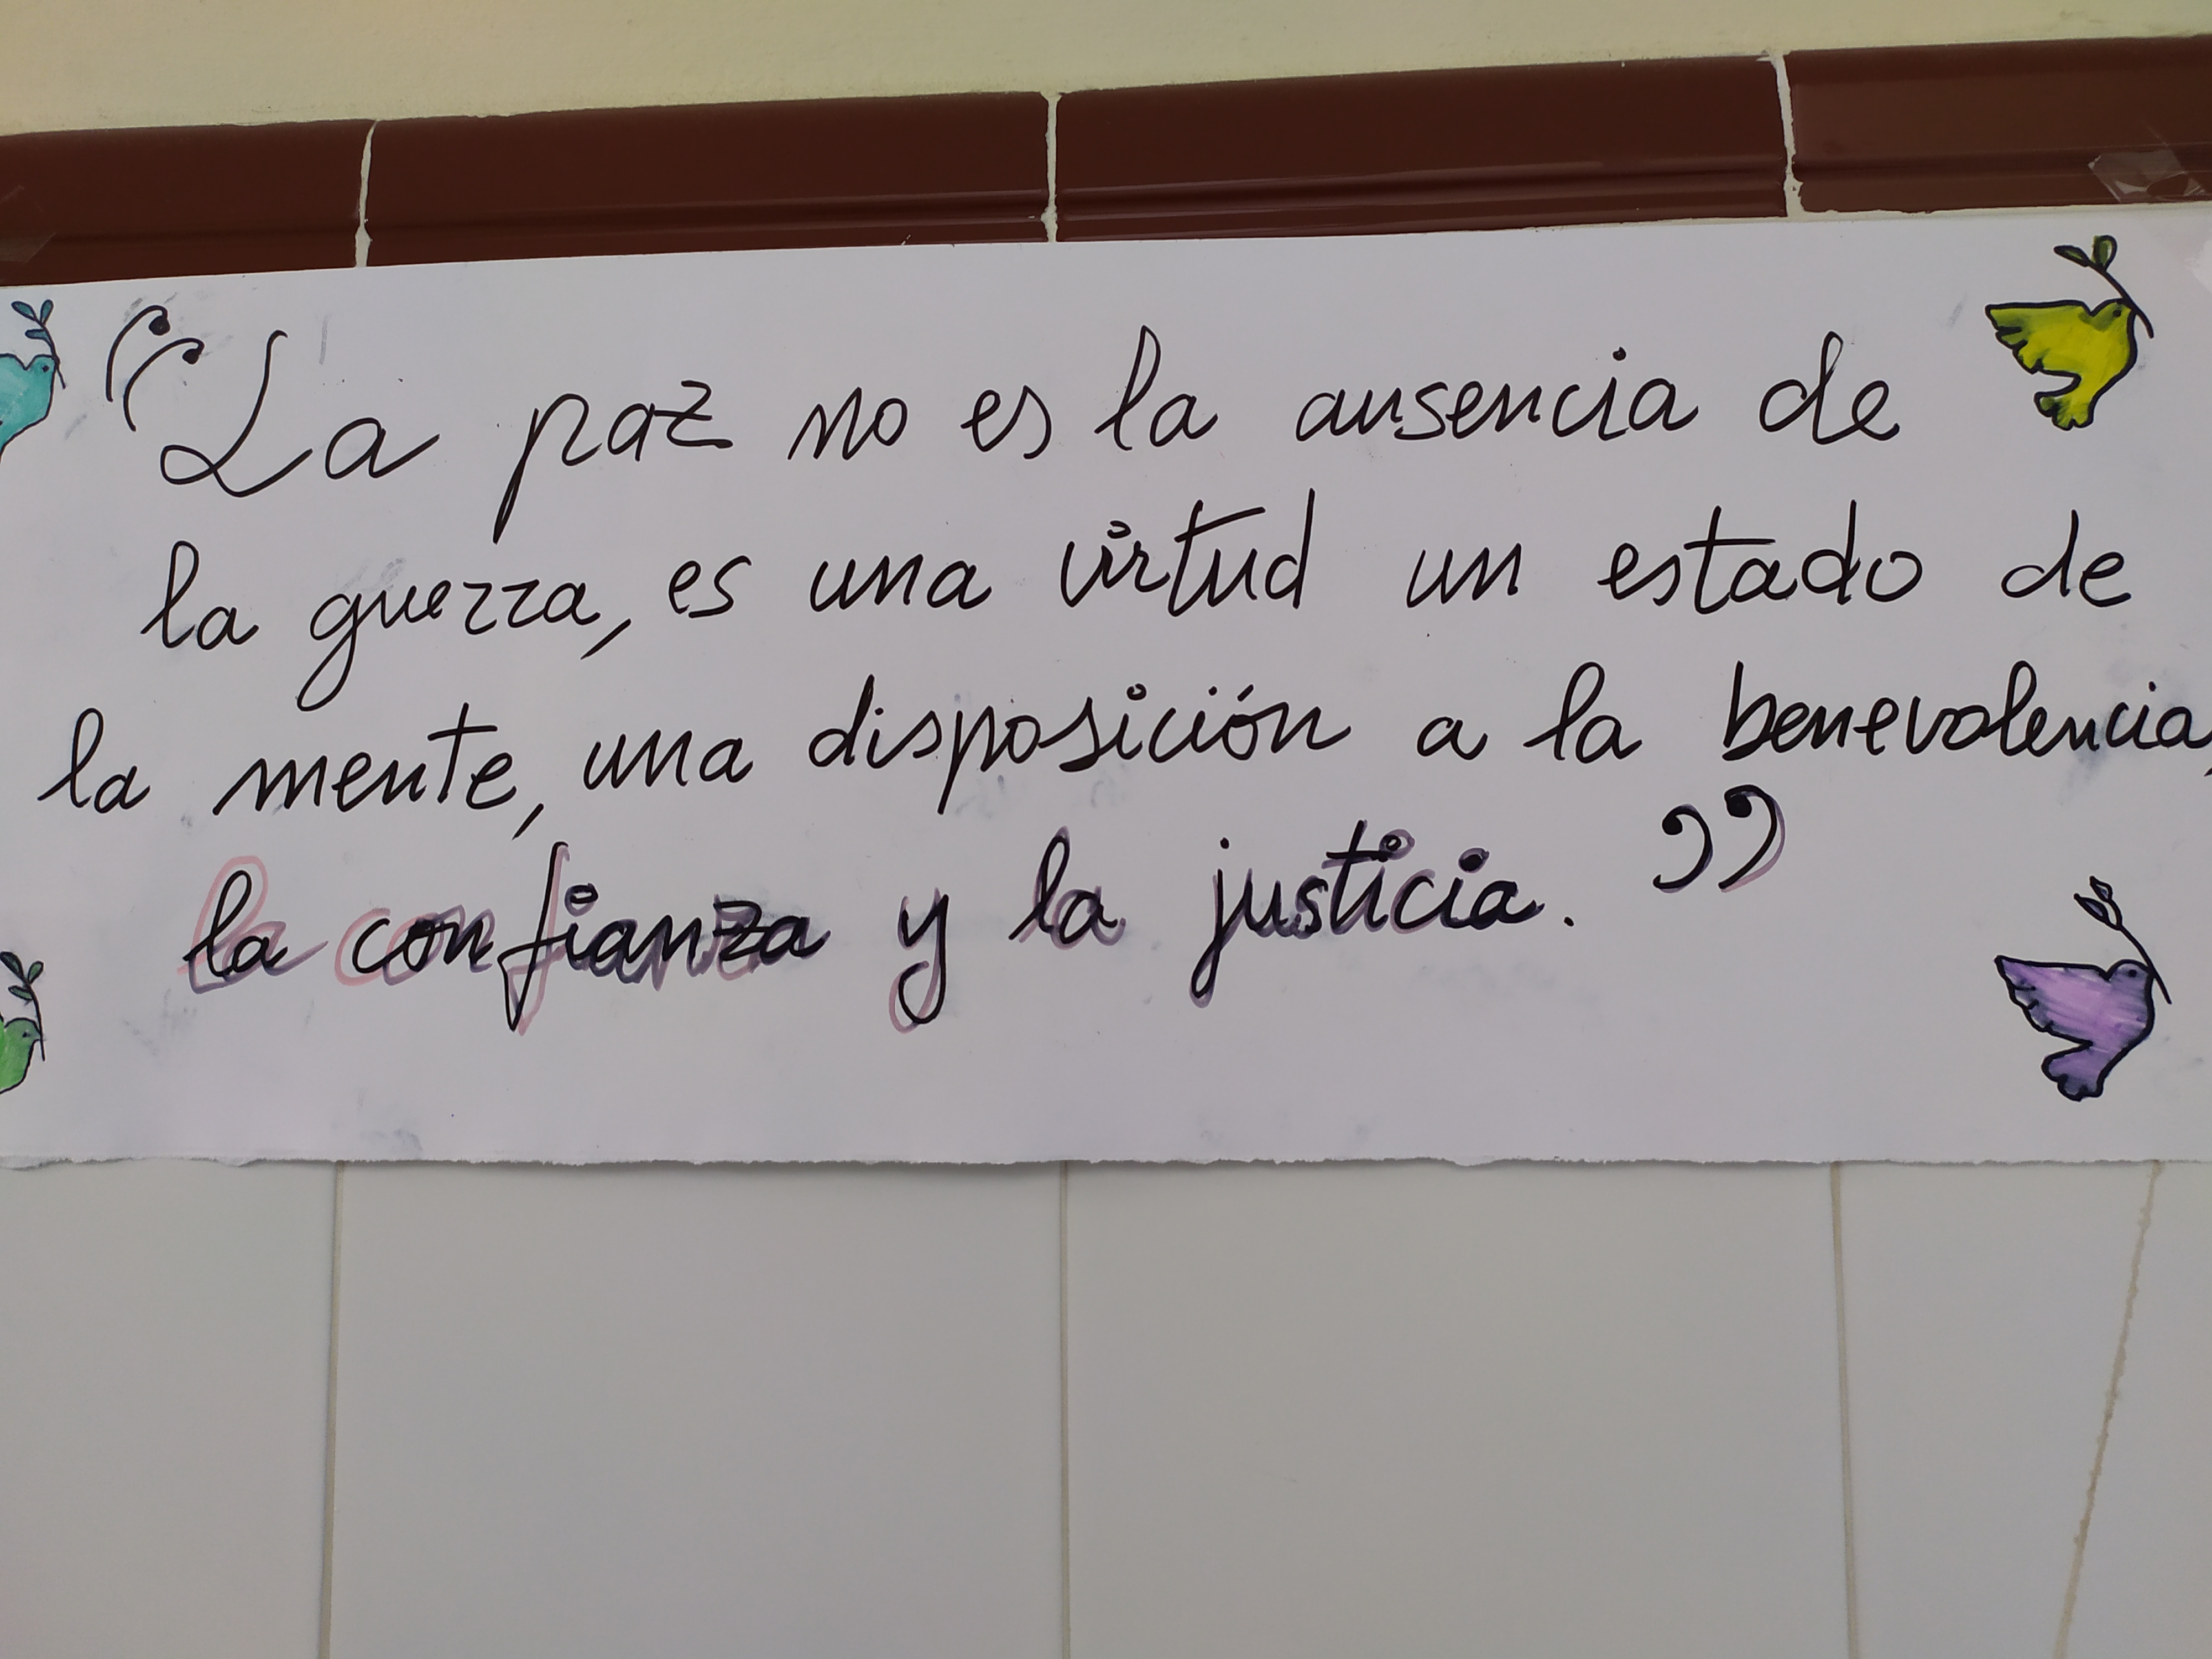 “La paz no es la ausencia de
la guerra, es una virtud un estado de
la mente, una disposición a la benevolencia,
la confianza y la justicia.”